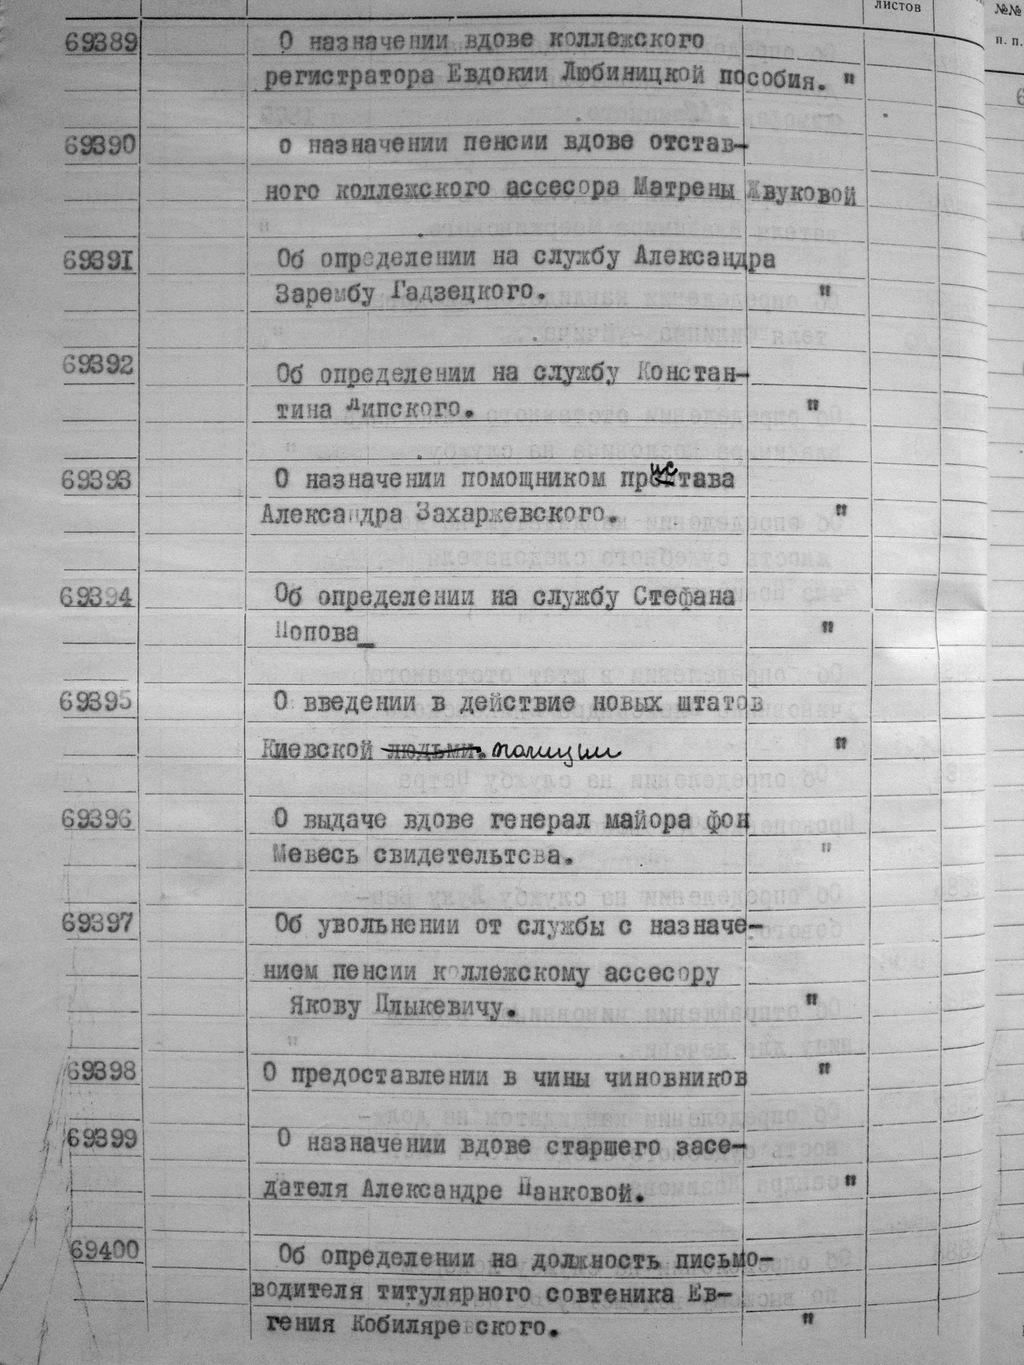 листов
№№
п. п.
69389 О назначении вдове коллежского
регистратора Евдокии Любиницкой пособия. "
69390 о назначении пенсии вдове отстав-
ного коллежского ассесора Матрены Жвуковой
69391 Об определении на службу Александра
Зарембу Гадзецкого. "
69392 Об определении на службу Констан-
тина Липского. "
69393 О назначении помощником пристава
Александра Захаржевского. "
69394 Об определении на службу Стефана
Попова_ "
69395 О введении в действие новых штатов
Киевской людьми. полиции "
69396 О выдаче вдове генерал майора фон
Мевесь свидетельтсва. "
69397 Об увольнении от службы с назначе-
нием пенсии коллежскому ассесору
Якову Плыкевичу. "
69398 О предоставлении в чины чиновников "
69399 О назначении вдове старшего засе-
дателя Александре Панковой. "
69400 Об определении на должность письмо-
водителя титулярного совтеника Ев-
гения Кобиляревского. "